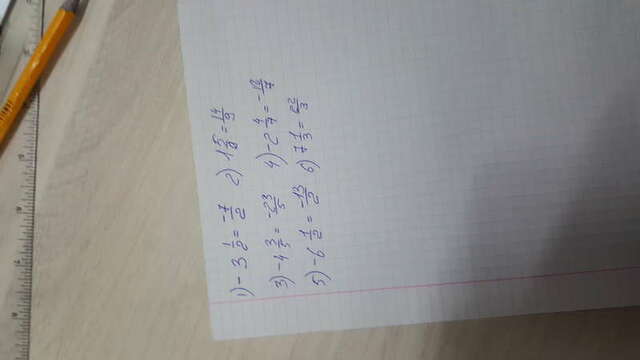 1) -3 1/2 = -7/2 2) 1 5/9 = 14/9
3) -4 3/5 = -23/5 4) -2 4/7 = -18/7
5) -6 1/2 = -13/2 6) 7 1/3 = 22/3